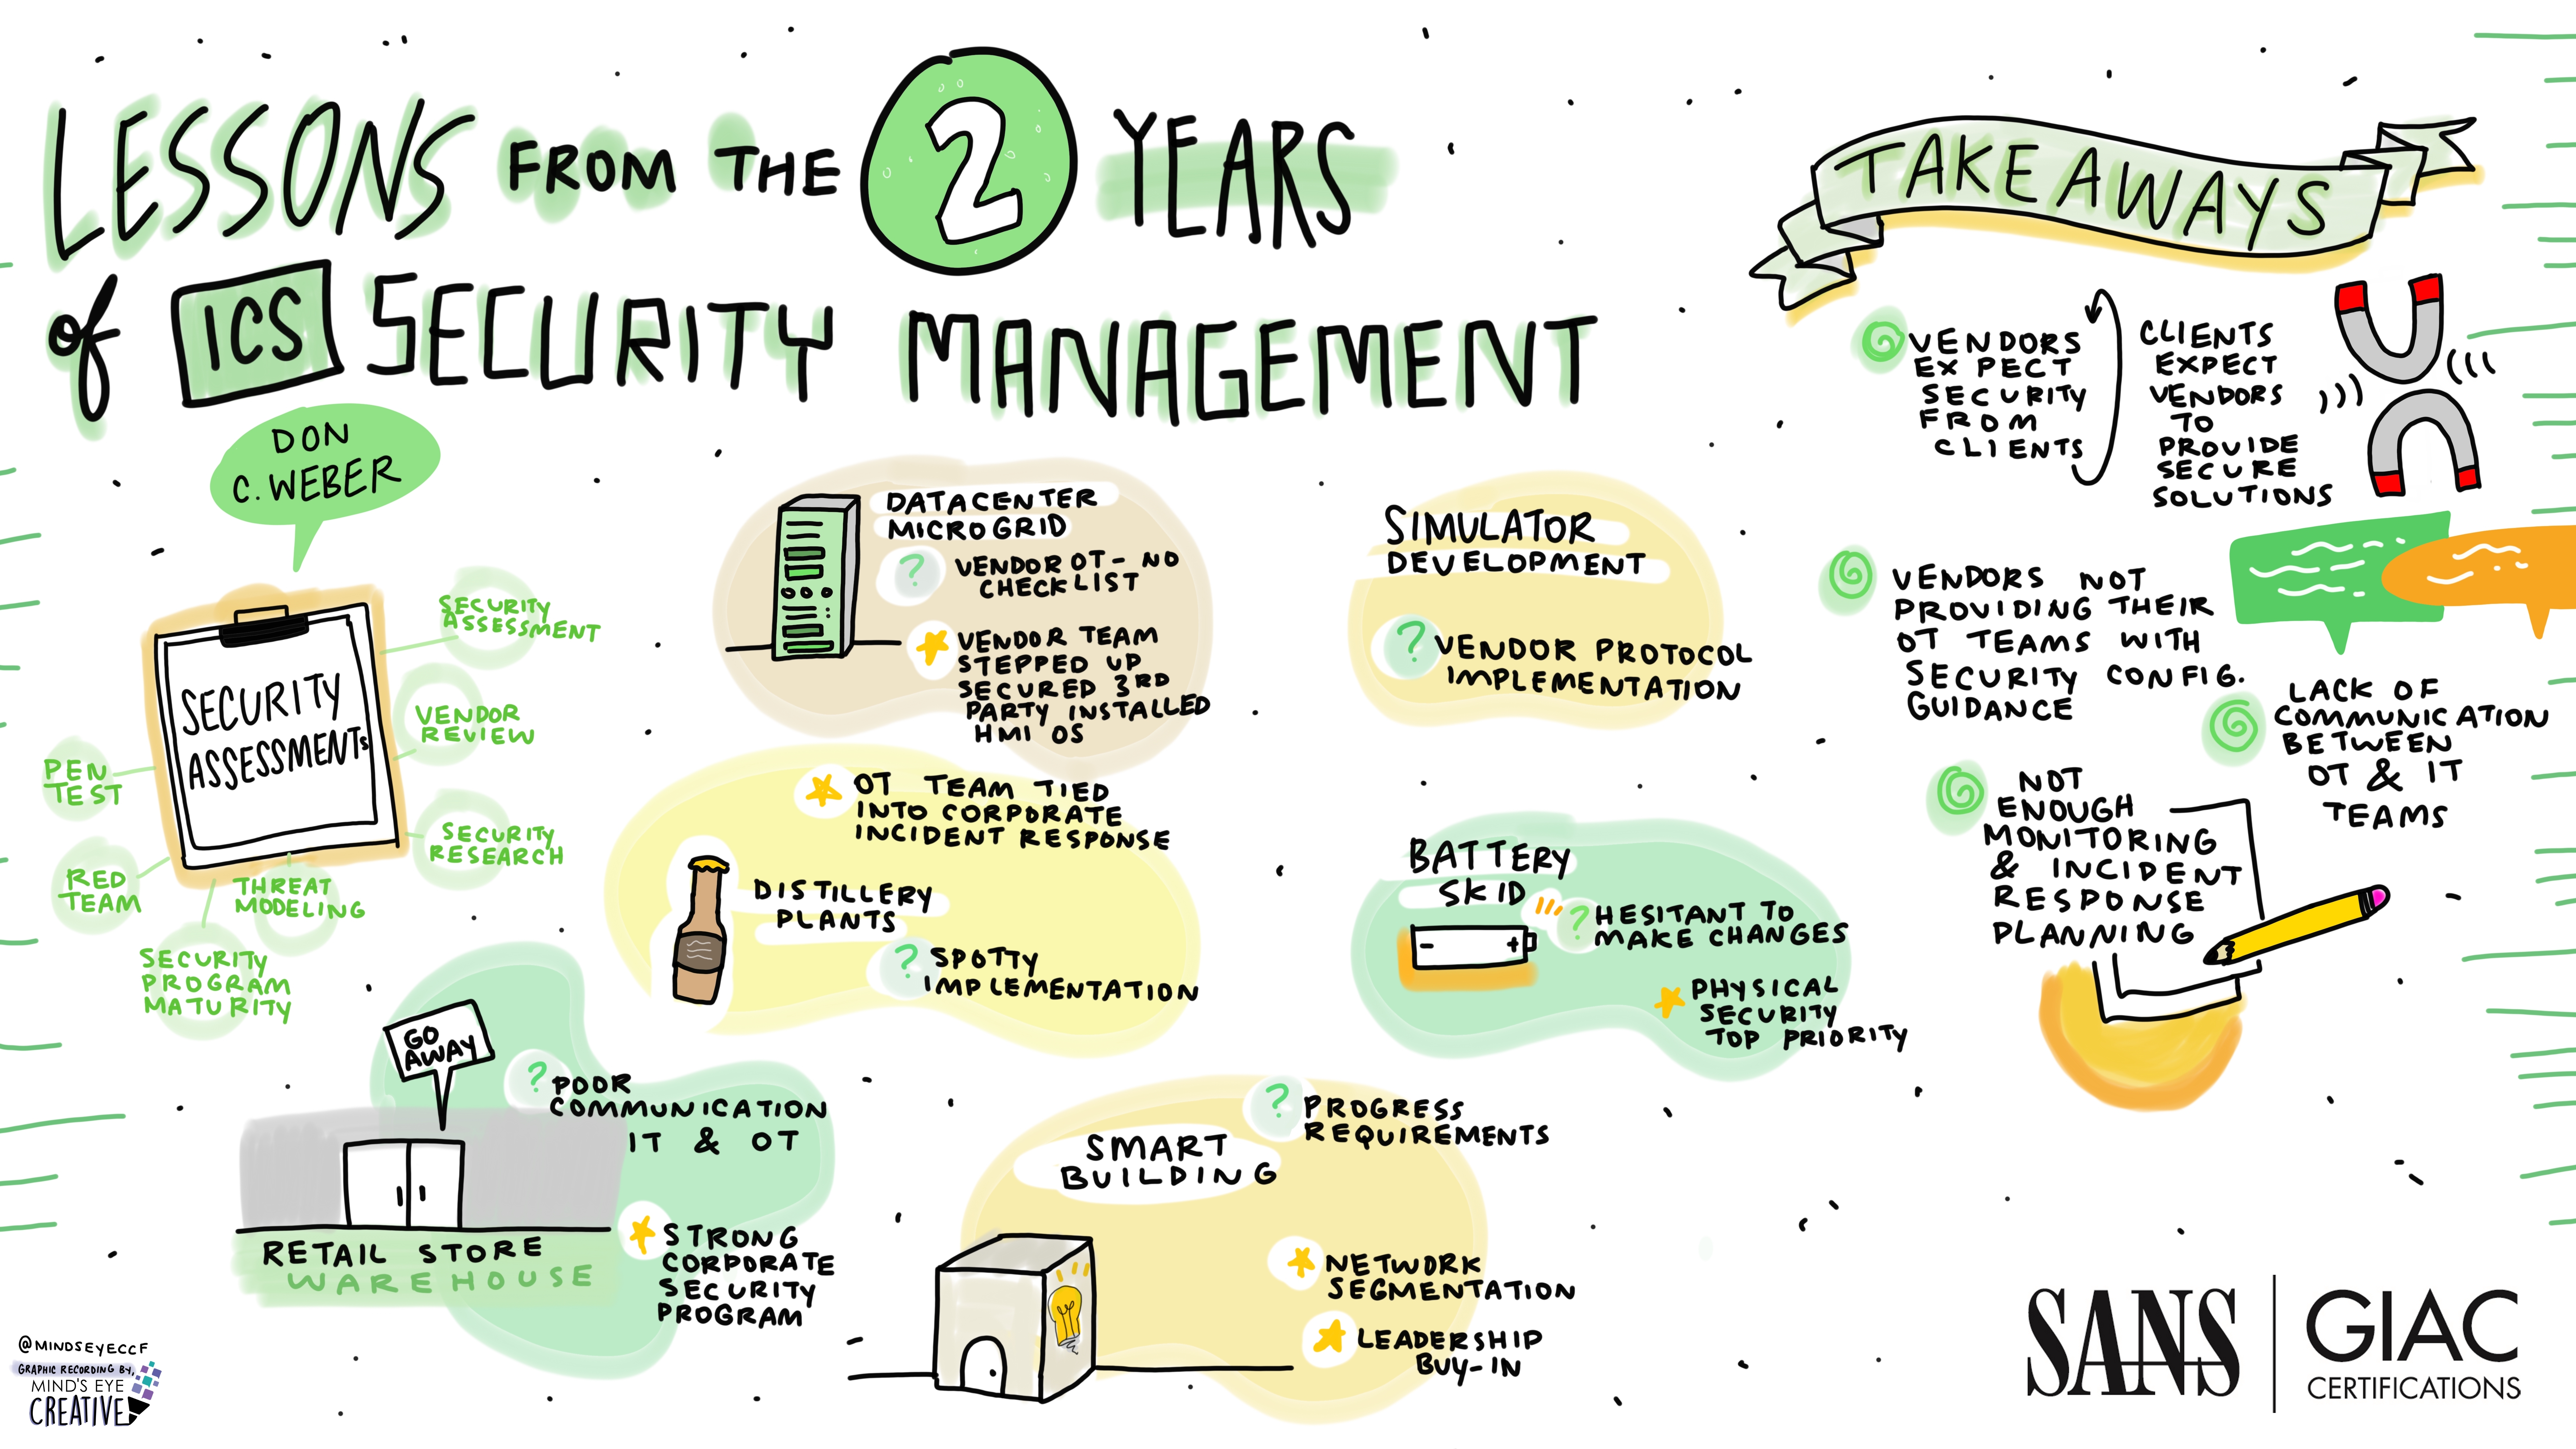 LESSONS FROM THE 2 YEARS
of ICS SECURITY MANAGEMENT
DON
C. WEBER
SECURITY
ASSESSMENTS
SECURITY
ASSESSMENT
VENDOR
REVIEW
SECURITY
RESEARCH
THREAT
MODELING
SECURITY
PROGRAM
MATURITY
RED
TEAM
PEN
TEST
DATACENTER
MICROGRID
? VENDOR OT - NO
CHECKLIST
VENDOR TEAM
STEPPED UP
SECURED 3RD
PARTY INSTALLED
HMI OS
SIMULATOR
DEVELOPMENT
? VENDOR PROTOCOL
IMPLEMENTATION
OT TEAM TIED
INTO CORPORATE
INCIDENT RESPONSE
DISTILLERY
PLANTS
? SPOTTY
IMPLEMENTATION
BATTERY
SKID
- +
? HESITANT TO
MAKE CHANGES
PHYSICAL
SECURITY
TOP PRIORITY
GO
AWAY
? POOR
COMMUNICATION
IT & OT
STRONG
CORPORATE
SECURITY
PROGRAM
RETAIL STORE
WAREHOUSE
SMART
BUILDING
? PROGRESS
REQUIREMENTS
NETWORK
SEGMENTATION
LEADERSHIP
BUY-IN
TAKEAWAYS
VENDORS
EXPECT
SECURITY
FROM
CLIENTS
CLIENTS
EXPECT
VENDORS
TO
PROVIDE
SECURE
SOLUTIONS
VENDORS NOT
PROVIDING THEIR
OT TEAMS WITH
SECURITY CONFIG.
GUIDANCE
LACK OF
COMMUNICATION
BETWEEN
OT & IT
TEAMS
NOT
ENOUGH
MONITORING
& INCIDENT
RESPONSE
PLANNING
@MINDSEYECCF
GRAPHIC RECORDING BY,
MIND'S EYE
CREATIVE
SANS
GIAC
CERTIFICATIONS